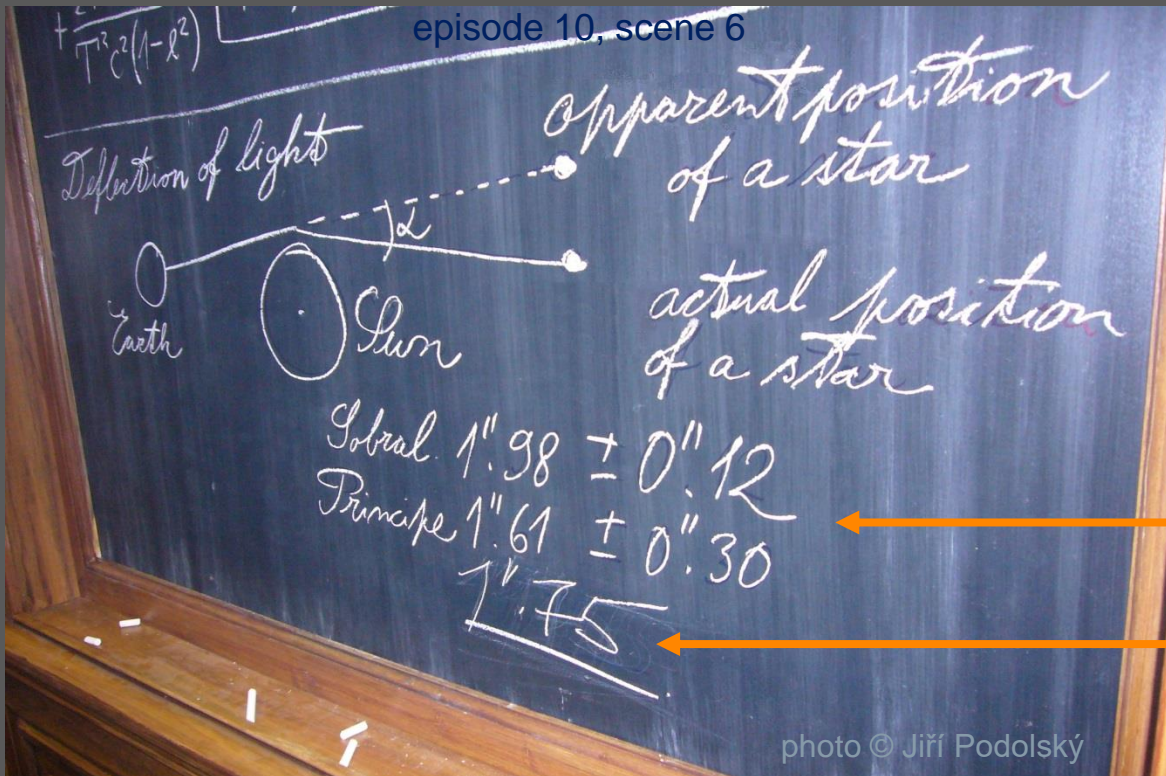 episode 10, scene 6
T²c²(1-e²)
Deflection of light
apparent position
of a star
α
Earth
Sun
actual position
of a star
Sobral. 1".98 ± 0".12
Principe 1".61 ± 0".30
1".75
photo © Jiří Podolský